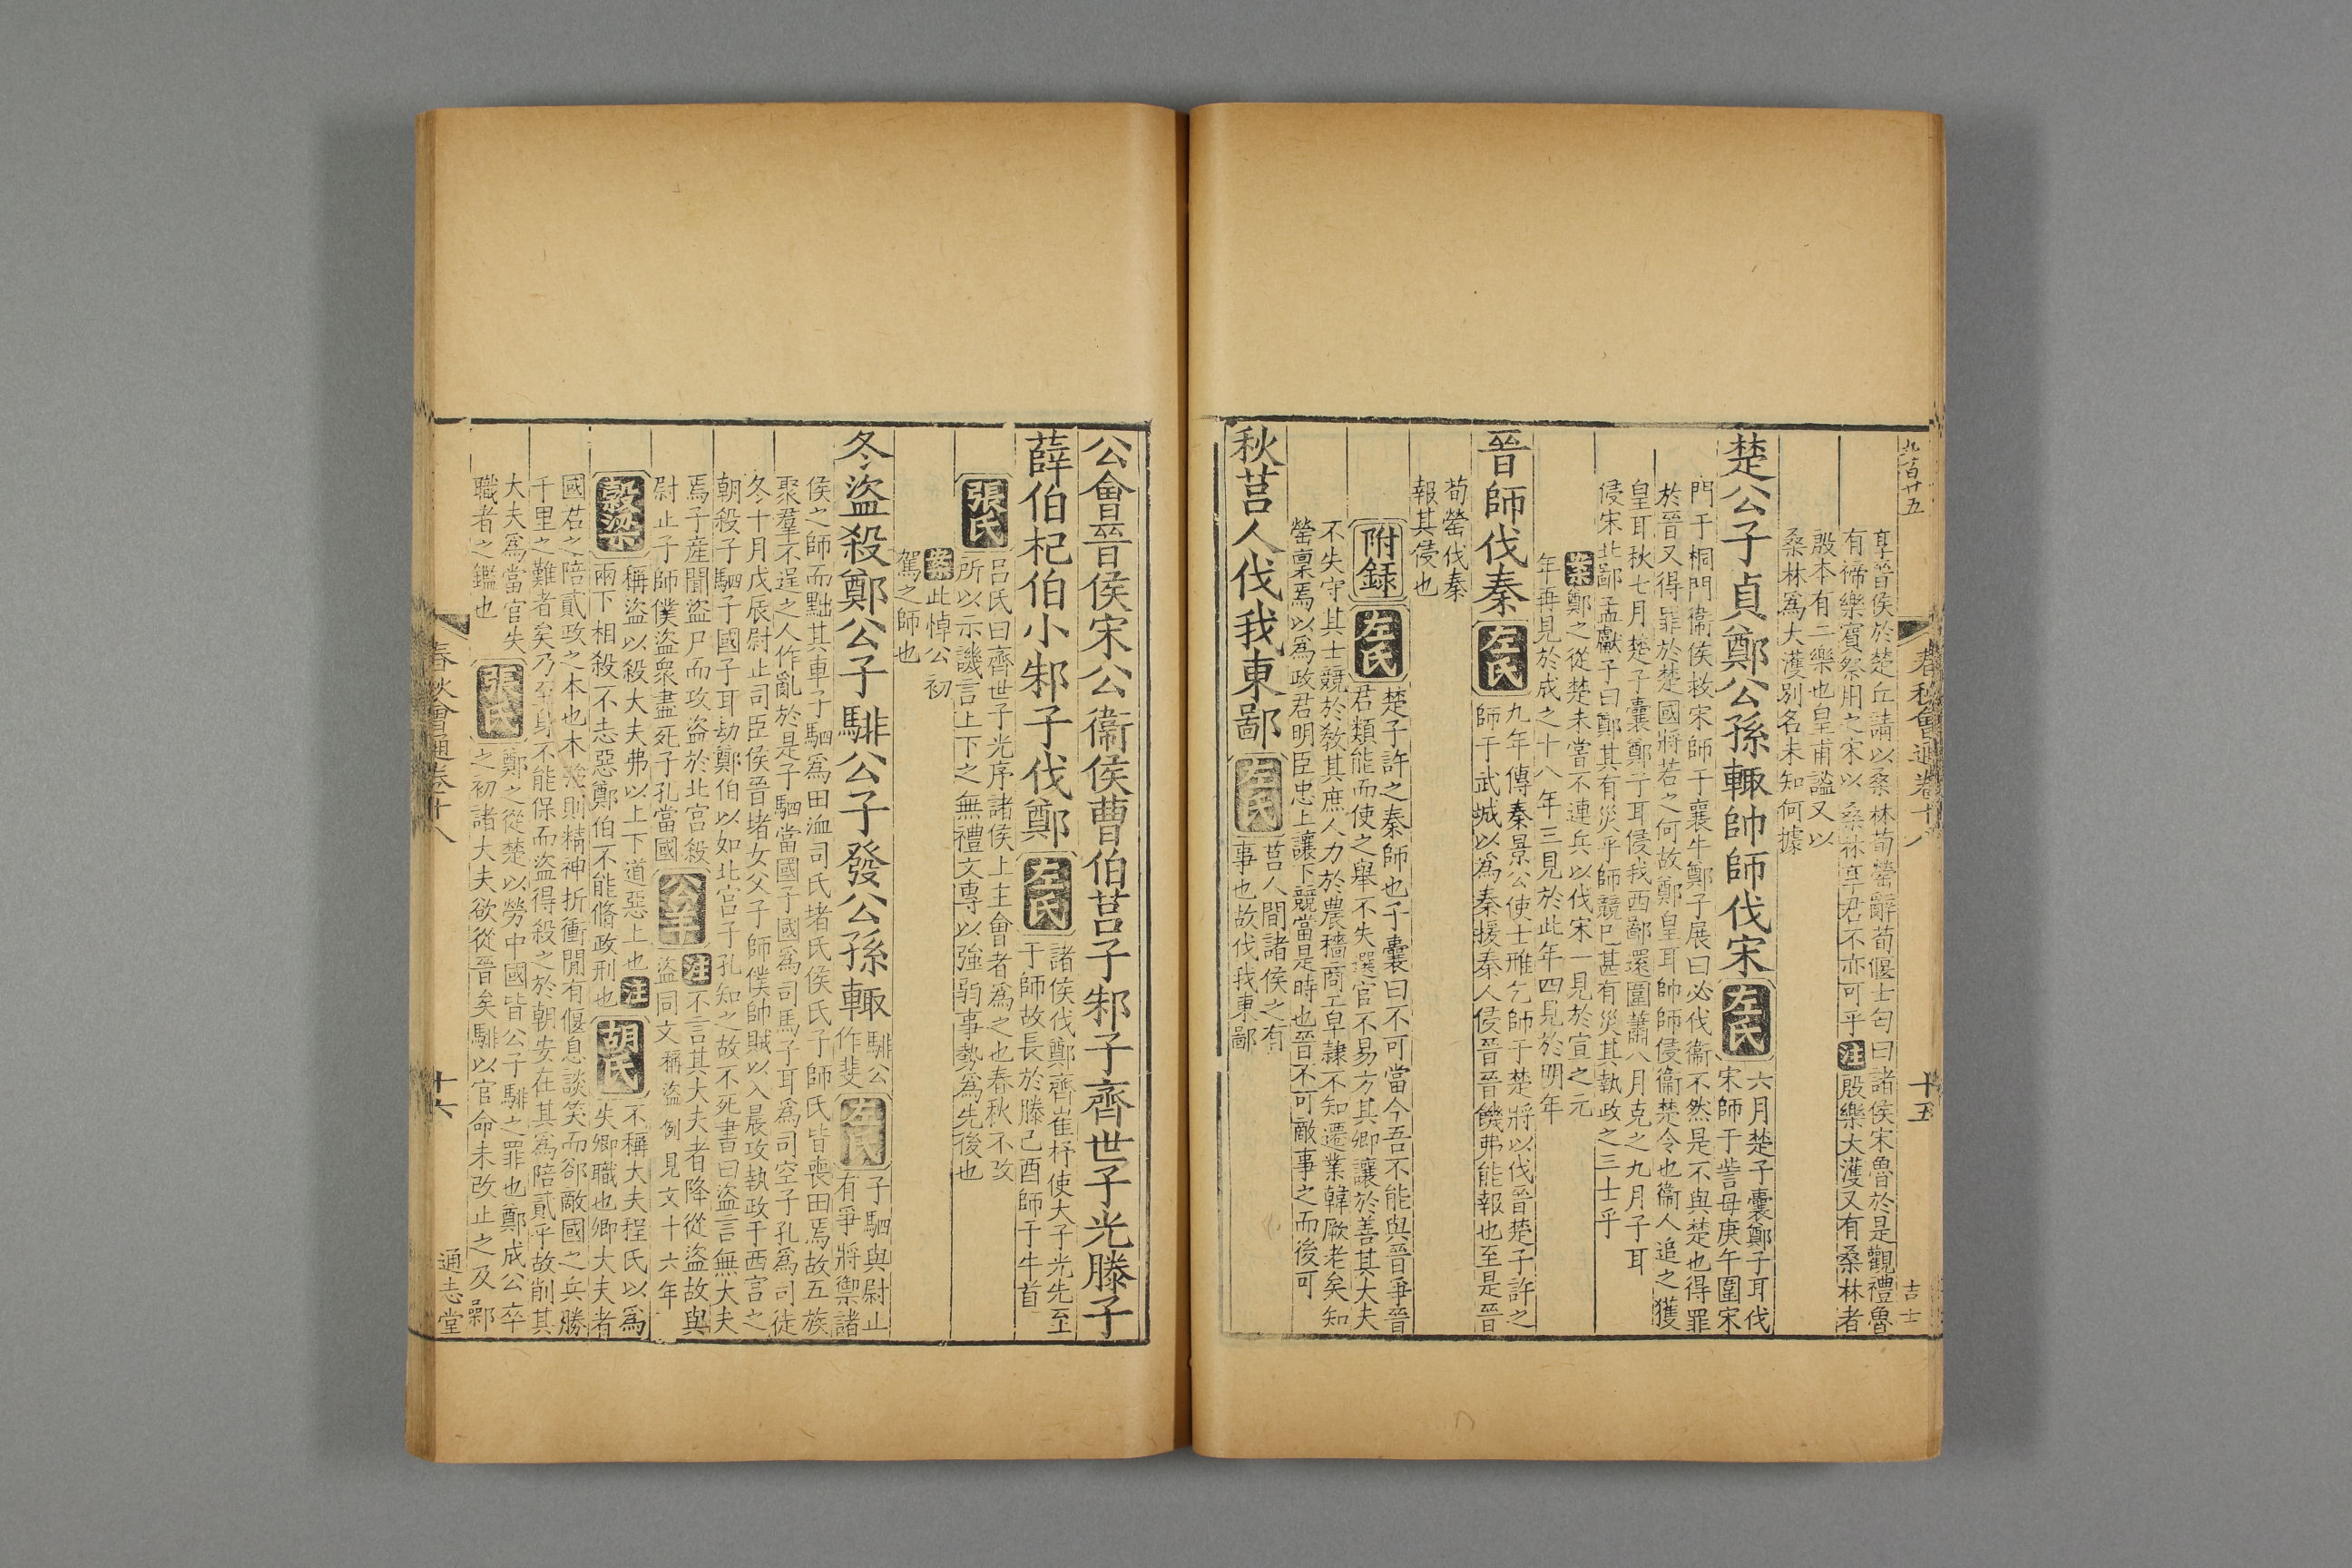 北百廿五
春秋會通卷十八
十五
吉士
享晉侯於楚丘請以桑林荀罃辭荀偃士匄曰諸侯宋魯於是觀禮魯
有禘樂賓祭用之宋以桑林享君不亦可乎注殷樂大濩又有桑林者
殷本有二樂也皇甫謐又以
桑林爲大濩別名未知何據
楚公子貞鄭公孫輒帥師伐宋左氏
六月楚子囊鄭子耳伐
宋師于訾毋庚午圍宋
門于桐門衞侯救宋師于襄牛鄭子展曰必伐衞不然是不與楚也得罪
於晉又得罪於楚國將若之何故鄭皇耳帥師侵衞楚令也衞人追之獲
皇耳秋七月楚子囊鄭子耳侵我西鄙還圍蕭八月克之九月子耳
侵宋北鄙孟獻子曰鄭其有災乎師競巳甚有災其執政之三士乎
案鄭之從楚未嘗不連兵以伐宋一見於宣之元
年再見於成之十八年三見於此年四見於明年
晉師伐秦左氏
九年傳秦景公使士雃乞師于楚將以伐晉楚子許之
師于武城以爲秦援秦人侵晉晉饑弗能報也至是晉
荀罃伐秦
報其侵也
附録左氏
楚子許之秦師也子囊曰不可當今吾不能與晉爭晉
君類能而使之舉不失選官不易方其卿讓於善其大夫
不失守其士競於敎其庶人力於農穡商工皁隸不知遷業韓厥老矣知
罃稟焉以爲政君明臣忠上讓下競當是時也晉不可敵事之而後可
秋莒人伐我東鄙左氏
莒人間諸侯之有
事也故伐我東鄙
公會晉侯宋公衞侯曹伯莒子邾子齊世子光滕子
薛伯杞伯小邾子伐鄭左氏
諸侯伐鄭齊崔杼使大子光先至
于師故長於滕己酉師于牛首
張氏
呂氏曰齊世子光序諸侯上主會者爲之也春秋不攺
所以示譏言上下之無禮文專以強弱事勢爲先後也
案此悼公初
駕之師也
冬盜殺鄭公子騑公子發公孫輒
騑公
作斐
左氏
子駟與尉止
有爭將禦諸
侯之師而黜其車子駟爲田洫司氏堵氏侯氏子師氏皆喪田焉故五族
聚羣不逞之人作亂於是子駟當國子國爲司馬子耳爲司空子孔爲司徒
冬十月戊辰尉止司臣侯晉堵女父子師僕帥賊以入晨攻執政于西宫之
朝殺子駟子國子耳劫鄭伯以如北宫子孔知之故不死書曰盜言無大夫
焉子產聞盜尸而攻盜於北宫殺
尉止子師僕盜衆盡死子孔當國
公羊注
不言其大夫者降從盜故與
盜同文稱盜例見文十六年
穀梁
稱盜以殺大夫弗以上下道惡上也注
兩下相殺不志惡鄭伯不能脩政刑也
胡氏
不稱大夫程氏以爲
失卿職也卿大夫者
國君之陪貳政之本也本則精神折衝聞有偃息談笑而郤敵國之兵勝
千里之難者矣乃至身不能保而盜得殺之於朝安在其爲陪貳乎故削其
大夫爲當官失
職者之鑑也
張氏
鄭之從楚以勞中國皆公子騑之罪也鄭成公卒
之初諸大夫欲從晉矣騑以官命未改止之及鄵
春秋會通卷十八
十六
通志堂